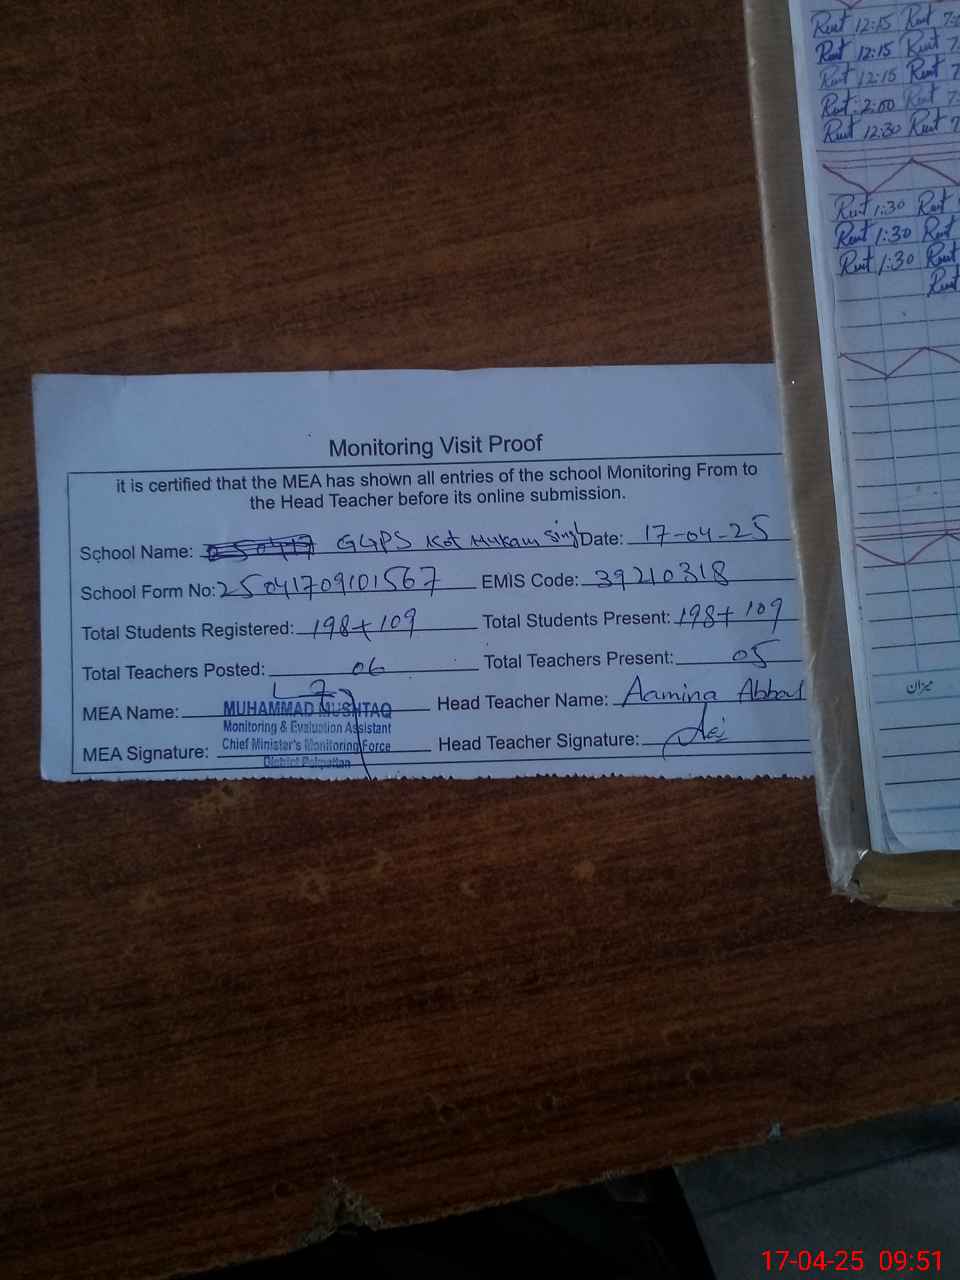 Rest 12:15 Rest 7:
Rest 12:15 Rest 7
Rest 12:15 Rest 7
Rest 2:00 Rest 7
Rest 12:30 Rest 7
Rest 1:30 Rest
Rest 1:30 Rest
Rest 1:30 Rest
Rest
میزان
Monitoring Visit Proof
it is certified that the MEA has shown all entries of the school Monitoring From to
the Head Teacher before its online submission.
School Name: GGPS Kot Mukam Singh Date: 17-04-25
School Form No: 25041709101567 EMIS Code: 39210318
Total Students Registered: 198+109 Total Students Present: 198+109
Total Teachers Posted: 06 Total Teachers Present: 05
MEA Name: MUHAMMAD MUSHTAQ Head Teacher Name: Aamina Abbas
Monitoring & Evaluation Assistant
MEA Signature: Chief Minister's Monitoring Force Head Teacher Signature:
District Pakpattan
17-04-25 09:51